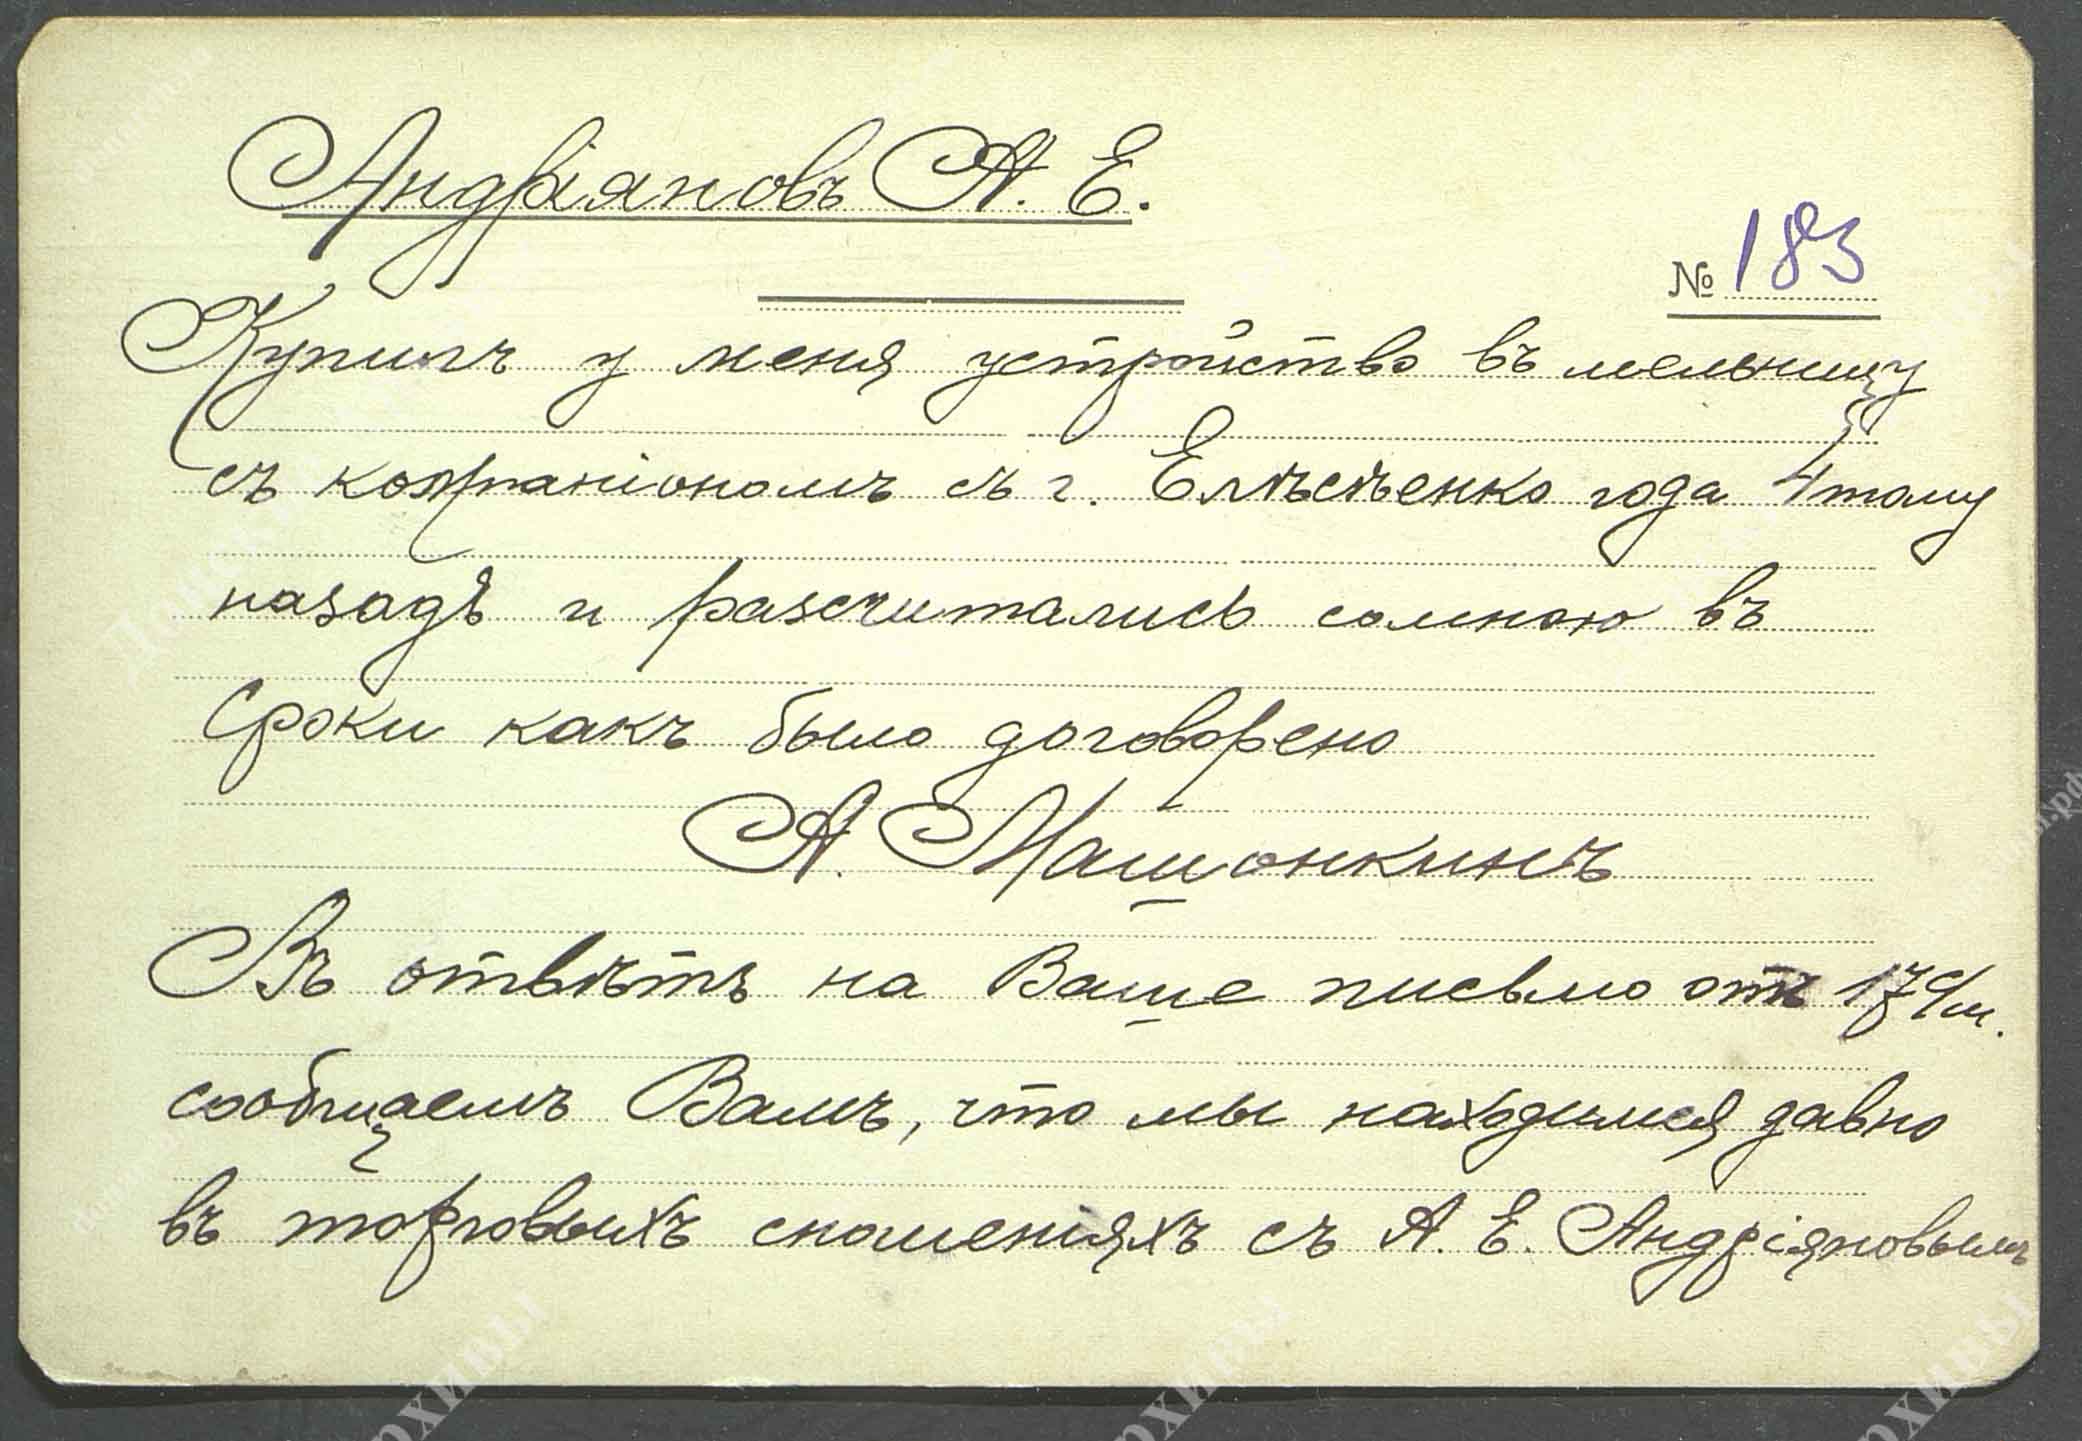 Андріяновъ А. Е.
№ 183
Купилъ у меня устройство въ мельницу
съ компаніономъ съ г. Елѣсѣенко года 4 тому
назадъ и разсчитались сомною въ
сроки какъ было договорено
А. Машонкинъ
Въ отвѣтъ на Ваше письмо отъ 17 с/м.
сообщаемъ Вамъ, что мы находимся давно
въ торговыхъ сношеніяхъ съ А. Е. Андріяновымъ